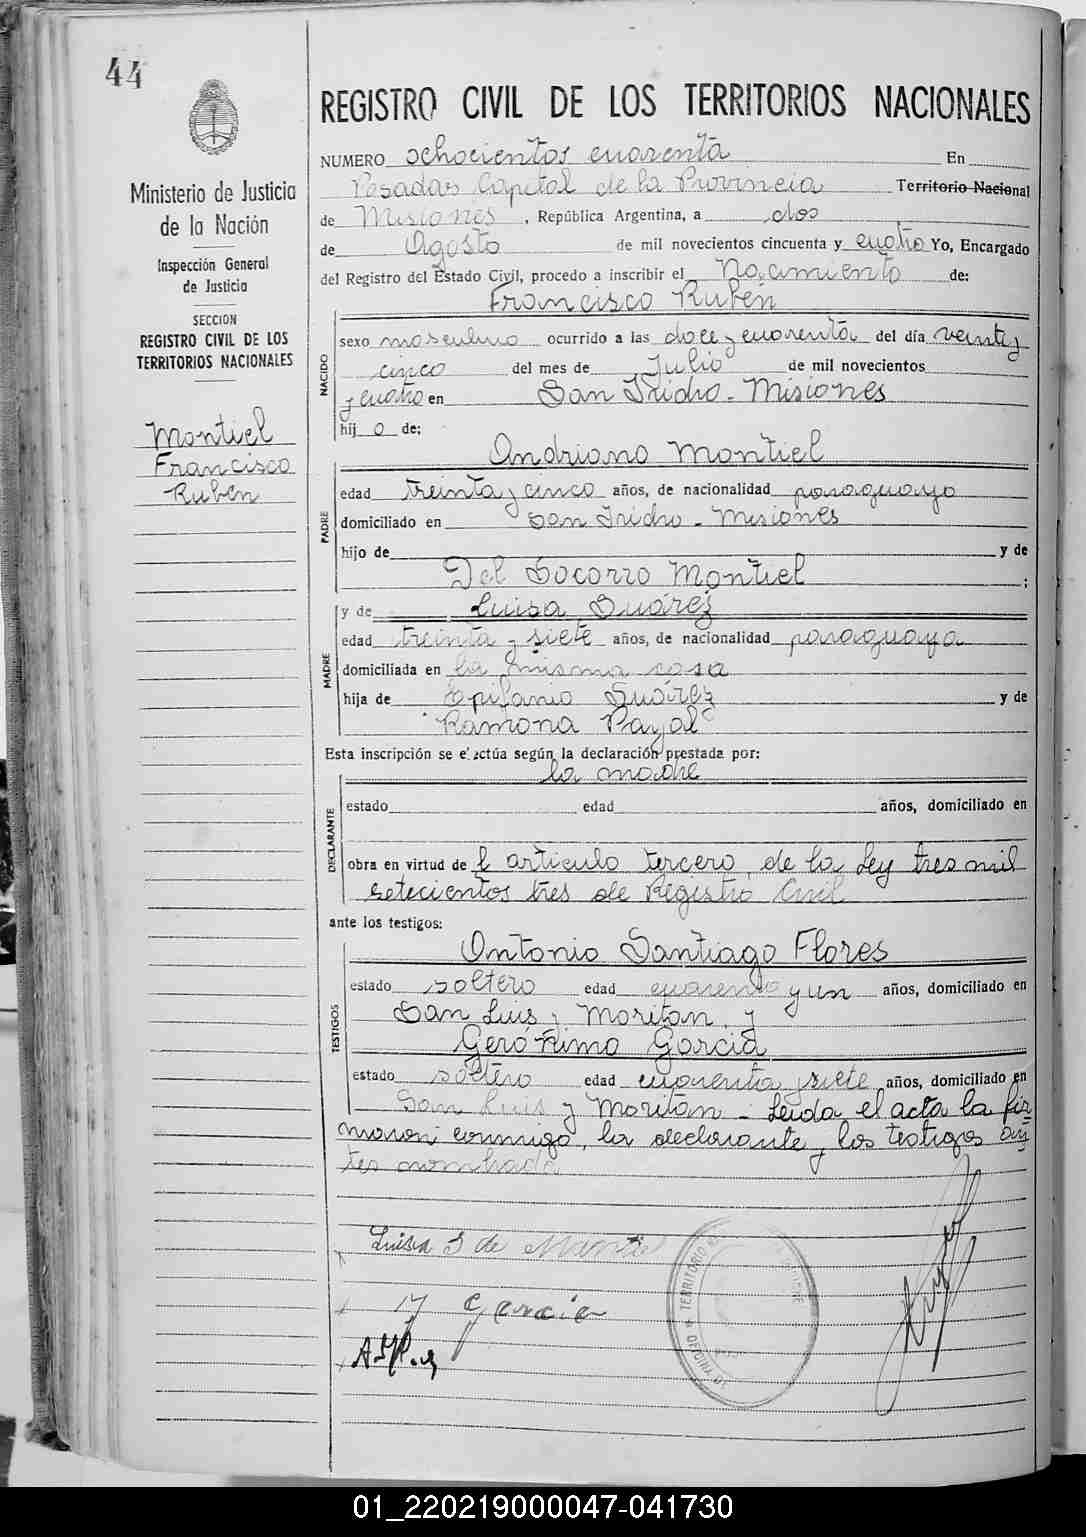 44
Ministerio de Justicia
de la Nación
Inspección General
de Justicia
SECCION
REGISTRO CIVIL DE LOS
TERRITORIOS NACIONALES
Montiel
Francisco
Ruben
REGISTRO CIVIL DE LOS TERRITORIOS NACIONALES
NUMERO ochocientos cuarenta En
Posadas Capital de la Provincia Territorio Nacional
de Misiones, República Argentina, a dos
de Agosto de mil novecientos cincuenta y cuatro Yo, Encargado
del Registro del Estado Civil, procedo a inscribir el Nacimiento de:
Francisco Rubén
NACIDO
sexo masculino ocurrido a las doce y cuarenta del día veinti
cinco del mes de Julio de mil novecientos
y cuatro en San Isidro - Misiones
hij o de:
Andriano Montiel
PADRE
edad treinta y cinco años, de nacionalidad paraguayo
domiciliado en San Isidro - Misiones
hijo de y de
Del Socorro Montiel ;
y de Luisa Suárez
MADRE
edad treinta y siete años, de nacionalidad paraguaya
domiciliada en la misma casa
hija de Epifanio Suárez y de
Ramona Payal
Esta inscripción se efectúa según la declaración prestada por:
la madre
DECLARANTE
estado edad años, domiciliado en
obra en virtud de l articulo tercero de la Ley tres mil
setecientos tres de Registro Civil
ante los testigos:
Antonio Santiago Flores
TESTIGOS
estado soltero edad cuarenta y un años, domiciliado en
San Luis y Moritan y
Gerónimo Garcia
estado soltero edad cuarenta y siete años, domiciliado en
San Luis y Moritan - Leida el acta la fir
maron conmigo, la declarante y los testigos an
tes nombrada
Luisa S de
Garcia
TERRITORIO
01_220219000047-041730